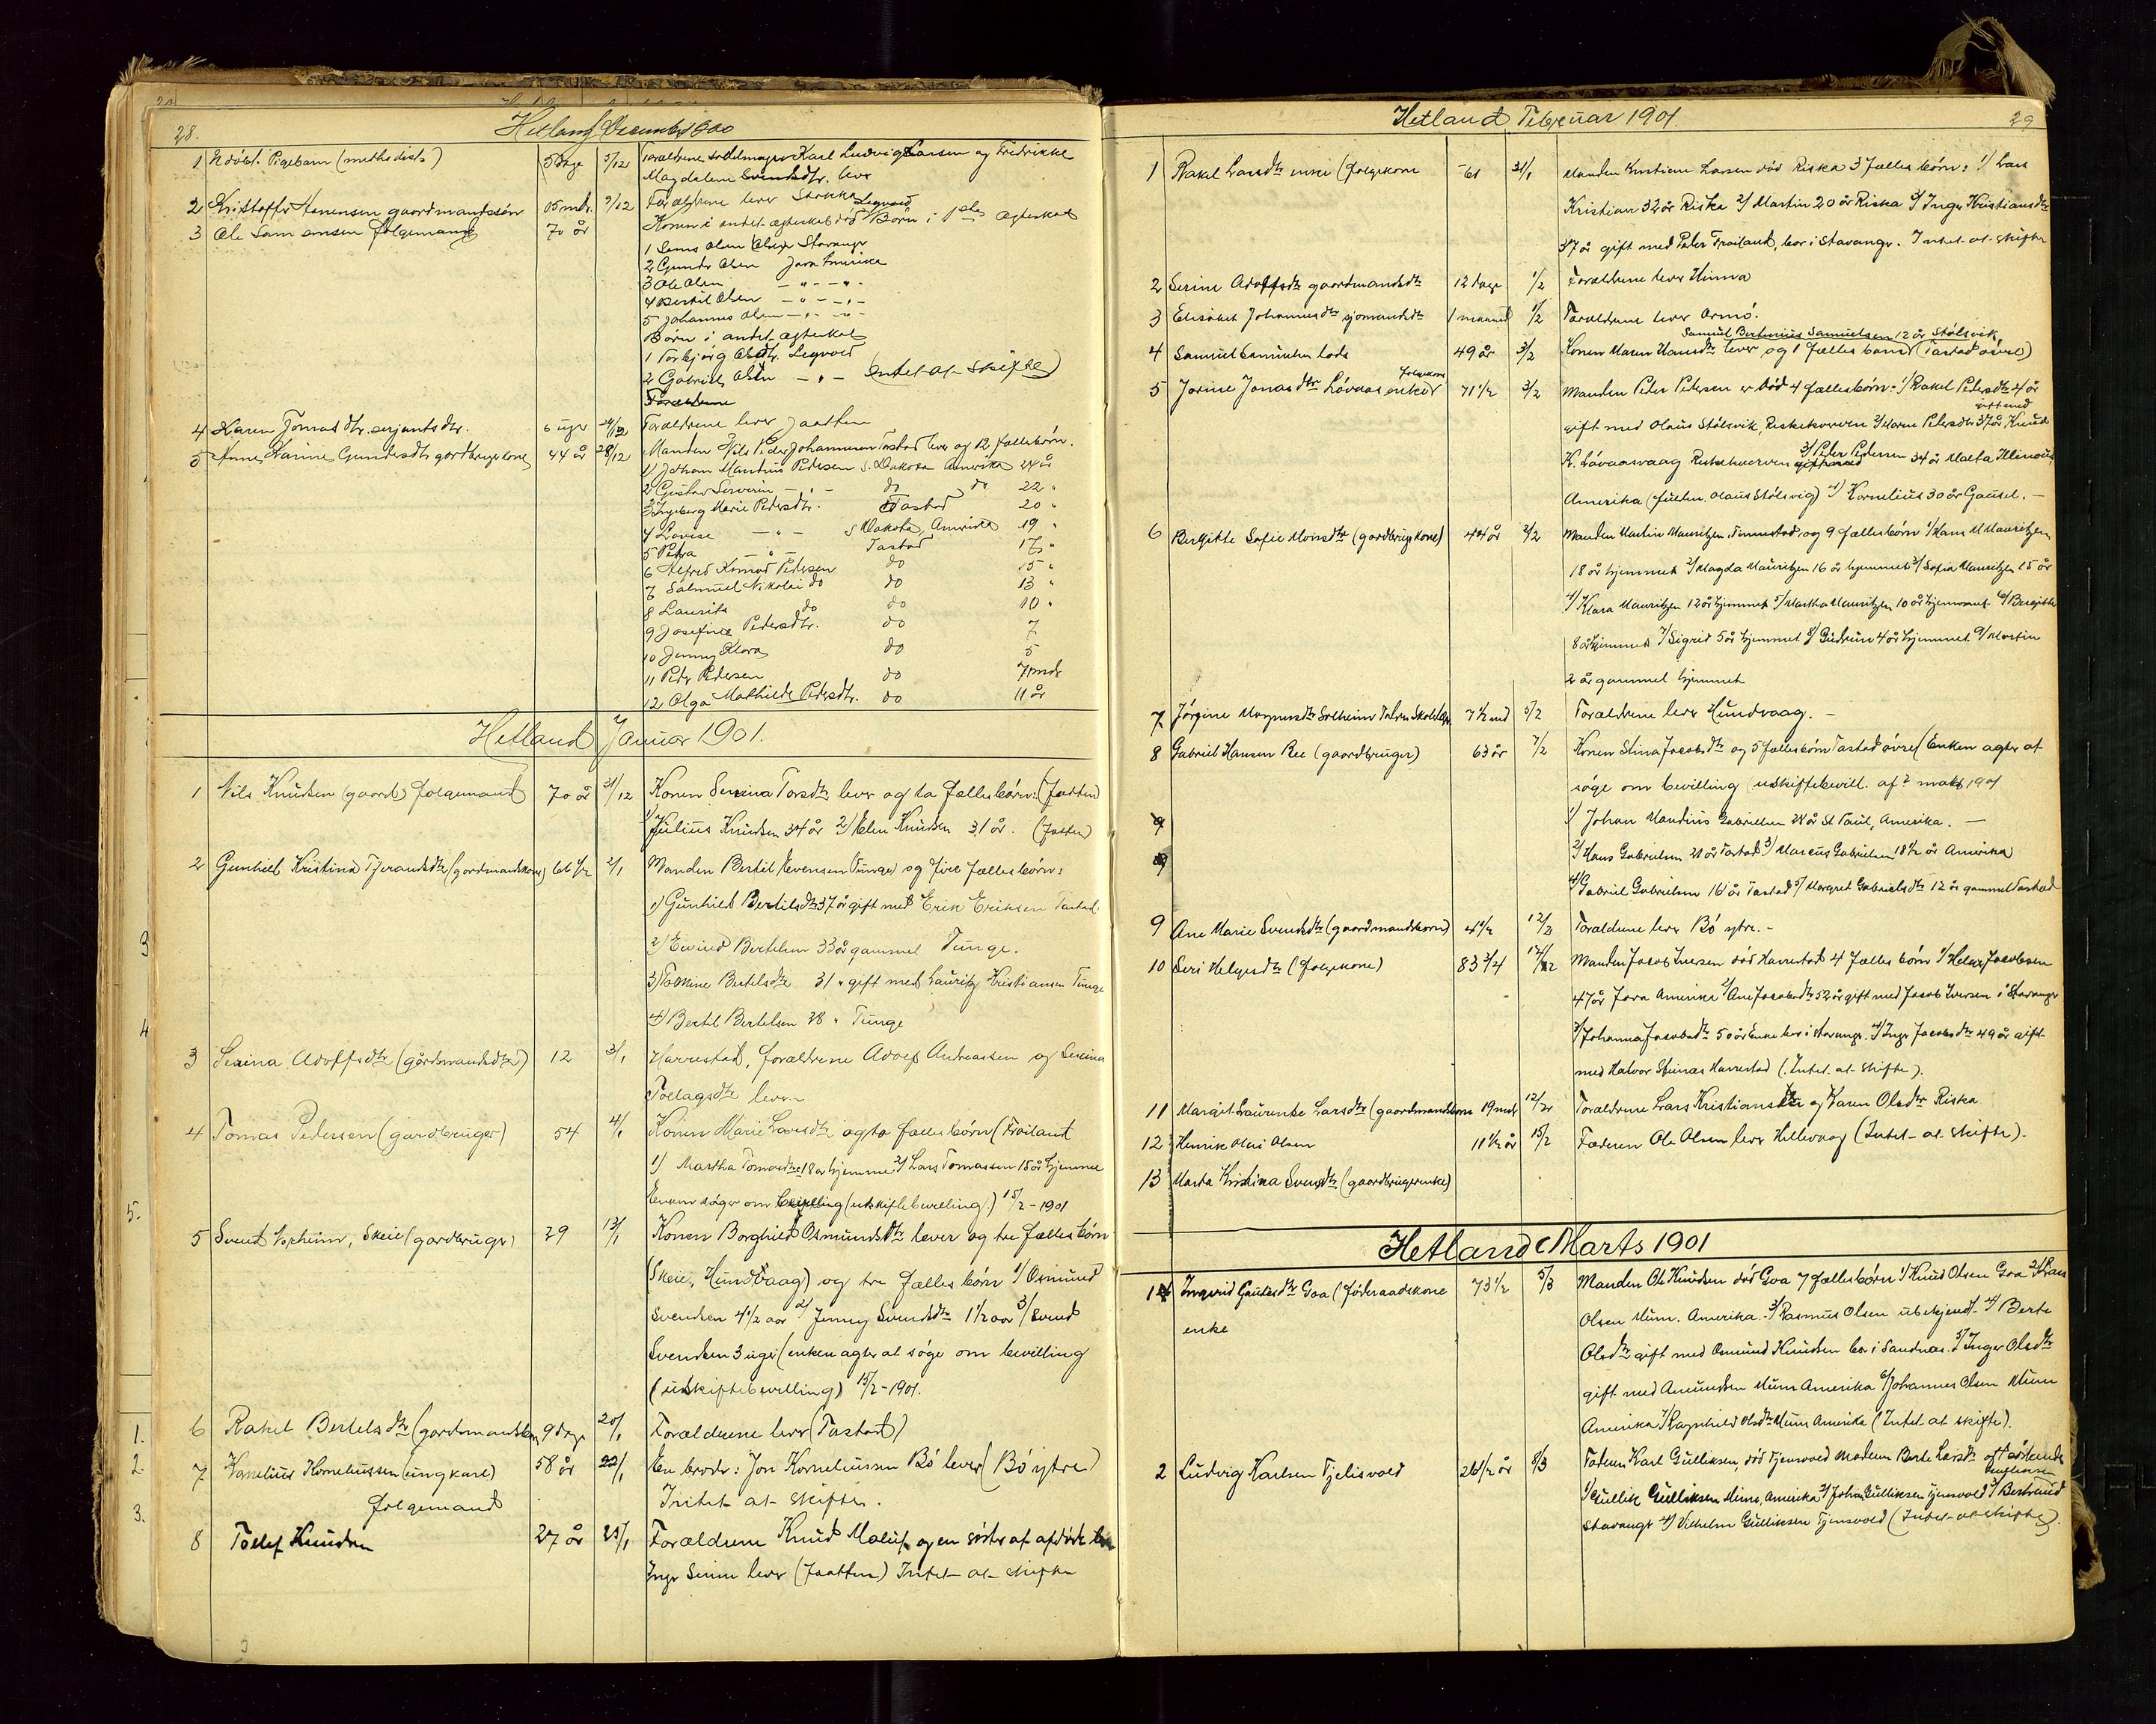 28.
Hetland December 1900
1 Udöbt Pigebarn (methodist) 5 Dage 5/12 Forældrene sadelmager Karl Ludvig Larsen og Fredrikke
Magdalene Svendsdtr. lever
2 Kristoffer gaardmandssön 05 mdr. 9/12 Forældrene lever Stokka
3 Ole Samsonsen Følgemand 70 år Konen i andet ægteskab död Legvold Børn i 1ste ægteskab
1 Sams Olsen Stavanger
2 Gunder Olsen Jova Amerika
3 Ole Olsen - " - - " -
4 Bertil Olsen - " - - " -
5 Johannes Olsen - " - - " -
Børn i andet ægteskab
1 Torbjörg Olsdtr. Legvold
2 Gabriel Olsen - " - (Intet at skifte)
Forældrene
4 Karen Jonasdtr. serjantsdtr. 6 uger 24/12 Forældrene lever Jaatten
5 Anne Karine Gundersdtr gordbrugerkone 44 år 28/12 Manden Nils Peder Johannesen Tastad lever og 12 fællesbörn.
1) Johan Mandius Pedersen S. Dakota Amerika 24 år
2 Gustav Severin - " - do do 22 "
3 Ingeborg Marie Pedersdtr. Tastad 20 "
4 Lovise - " - S Dakota, Amerika 19 "
5 Petra - " - Tastad 17 "
6 Alfred Konrad Pedersen do 15 "
7 Salmuel Nikolai do do 13 "
8 Laurits do do 10 "
9 Josefine Pedersdtr. do 7
10 Jenny Klara do 5
11 Peder Pedersen do 7 mdr
12 Olga Mathilde Pedersdtr. do 11 år
Hetland Januar 1901.
1 Nils Knudsen (gaard) Følgemand 70 år 31/12 Konen Serina Torsdtr lever og to fællesbörn: (Jatten)
1) Julius Knudsen 34 år 2) Elen Knudsen 31 år. (Jatten)
2 Gunhild Kristina Tjerandsdtr (gordmandskone) 66 1/2 2/1 Manden Bertil Evensen Tunge) og fire fællesbörn:
1) Gunhild Bertilsdtr 37 år gift med Erik Eriksen Tastad
2) Eivind Bertelsen 33 år gammel Tunge.
3) Tomine Bertelsdtr 31 " gift med Lauritz Kristiansen Tunge
4) Bertil Bertelsen 28 " Tunge
3 Serina Adolfsdtr (gårdsmandsdtr) 12 3/1 Harrestad, forældrene Adolf Andreassen og Serina
Tollagsdtr lever
4 Tomas Pedersen (gardbruger) 54 4/1 Konen Marie Larsdtr og to fællesbörn (Froiland
1) Martha Tomasdtr 18 år hjemme 2) Lars Tomassen 15 år hjemme
Enken söger om bevilling (uskiftebevilling) 15/2 - 1901
5 Svend Espheim, Skeie (gordbruger) 29 13/1 Konen Borghild Osmundsdtr lever og tre fællesbörn
(Skeie, Hundvaag) og tre fællesbörn 1) Osmund
Svendsen 4 1/2 aar 2) Jenny Svendsdtr 1 1/2 aar 3) Svend
Svendsen 3 uger (enken agter at söge om bevilling
(uskiftebevilling) 15/2 - 1901.
6 Rakel Bertelsdtr (gordsmandsbarn 9 dage 20/1 Forældrene lever (Tastad)
7 Kornelius Korneliussen (ungkarl) 58 år 22/1 En broder: Jon Korneliussen Bö lever (Bö ytre)
Følgemand Intet at skifte.
8 Tollef Knudsen 27 år 25/1 Forældrene Knud og en söster af afdöde
Inger Serine lever (Jaatten) Intet at skifte
Hetland Februar 1901. 29
1 Rakel Larsdtr enke (følgekone 61 31/1 Manden Kristian Larsen död Riska 3 fælles börn: 1) Lars
Kristian 32 år Riska 2) Martin 20 år Riska 3) Inger Kristiansdtr
37 år gift med Peter Froiland, bor i Stavanger. Intet at skifte
2 Serine Adolfsdtr gaardmandsdtr 12 dage 1/2 Forældrene lever Hinna
3 Elisabet Johannesdtr sjömandsdtr 1 maaned 1/2 Forældrene lever Ormö.
Samuel Bertinius Samuelsen 12 år Stölsvik,
4 Samuel Samuelsen lods 49 år 3/2 Konen Maren Hansdtr lever og 1 fælles barn (Tastad övre)
5 Jorine Jonasdtr Lövaas enke følgekone 71 1/2 3/2 Manden Peder Pedersen er död 4 fællesbörn: 1) Rakel Pedersdtr 4 år
gift med Olaus Stölsvik, Riskekverven 2) Maren Pedersdtr 37 år gift med Knud
K. Lövaasvaag Riskekverven 3) Peder Pedersen 34 år Malta Illinois
Amerika (fuldm. Olaus Stölsvig) 4) Kornelius 30 år Gausel. -
6 Bergitte Sofie Monsdtr (gordbrugerkone) 44 år 2/2 Manden Martin Mauritzen Finnestad og 9 fællesbörn 1) Hans M Mauritzen
18 år hjemmet 2) Magda Mauritzen 16 år hjemmet 3) Sofia Mauritzen 15 år
4) Klara Mauritzen 12 år hjemmet 5) Martha Mauritzen 10 år hjemmet 6) Bergitte
8 år hjemmet 7) Sigrid 5 år hjemmet 8) Gudrun 4 år hjemmet 9) Martin
2 år gammel hjemmet
7 Jörgine Magnusdtr Solheim 7 1/2 md 5/2 Forældrene lever Hundvaag. -
8 Gabriel Hansen Ree (gaardbruger) 63 år 7/2 Konen Stina Jacobsdtr og 5 fællesbörn Tastad övre (Enken agter at
söge om bevilling uskiftebevill. af 2 marts 1901
9 1) Johan Mandius Gabrielsen 24 år St Paul, Amerika. -
2) Hans Gabrielsen 21 år Tastad 3) Marcus Gabrielsen 18 1/2 år Amerika
4) Gabriel Gabrielsen 16 år Tastad 5) Margret Gabrielsdtr 12 år gammel Tastad
9 Ane Marie Svendsdtr (gaardmandsbarn) 4 1/2 12/2 Forældrene lever Bö ytre. -
10 Seri Helgesdtr (følgekone) 83 3/4 12/2 Manden Jacob Iversen död Harrestad 4 fælles börn 1) Helge Jacobsen
47 år Jova Amerika 2) Ane Jacobsdtr 52 år gift med Jacob Iversen i Stavanger
3) Johanna Jacobsdtr 50 år enke bor i Stavanger. 4) Inger Jacobsdtr 49 år gift
med Halvor Steinas Harrestad (Intet at skifte).
11 Margit Laurentse Larsdtr (gaardmandsbarn 19 mdr 12/2 Forældrene Lars Kristiansen og Karen Olsdtr Riska
12 Henrik Olai Olsen 11 1/2 år 15/2 Faderen Ole Olsen lever Hillevaag (Intet at skifte).
13 Marta Kristina Svendsdtr (gaardbrugerenke)
Hetland Marts 1901
1 Ingerid Gautesdtr Goa (föderaadskone 73 1/2 5/3 Manden Ole Knudsen död Goa 7 fællesbörn 1) Knud Olsen Goa 2) Hans
enke Olsen Minn. Amerika. 3) Rasmus Olsen ubekjendt 4) Berte
Olsdtr gift med Osmund Knudsen bor i Sandnæs. 5) Inger Olsdtr
gift med Amundsen Minn Amerika 6) Johannes Olsen Minn
Amerika 7) Ragnhild Olsdtr Minn Amerika (Intet at skifte).
2 Ludvig Karlsen Tjelsvold 26 1/2 år 8/3 Faderen Karl Gulliksen, död Tjensvold Moderen Berte Larsdtr
1) Gullik Gulliksen Minn, Amerika 2) Johan Gulliksen Tjensvold 3) Bertrand Gulliksen
Stavanger 4) Vilhelm Gulliksen Tjensvold (Intet at skifte).